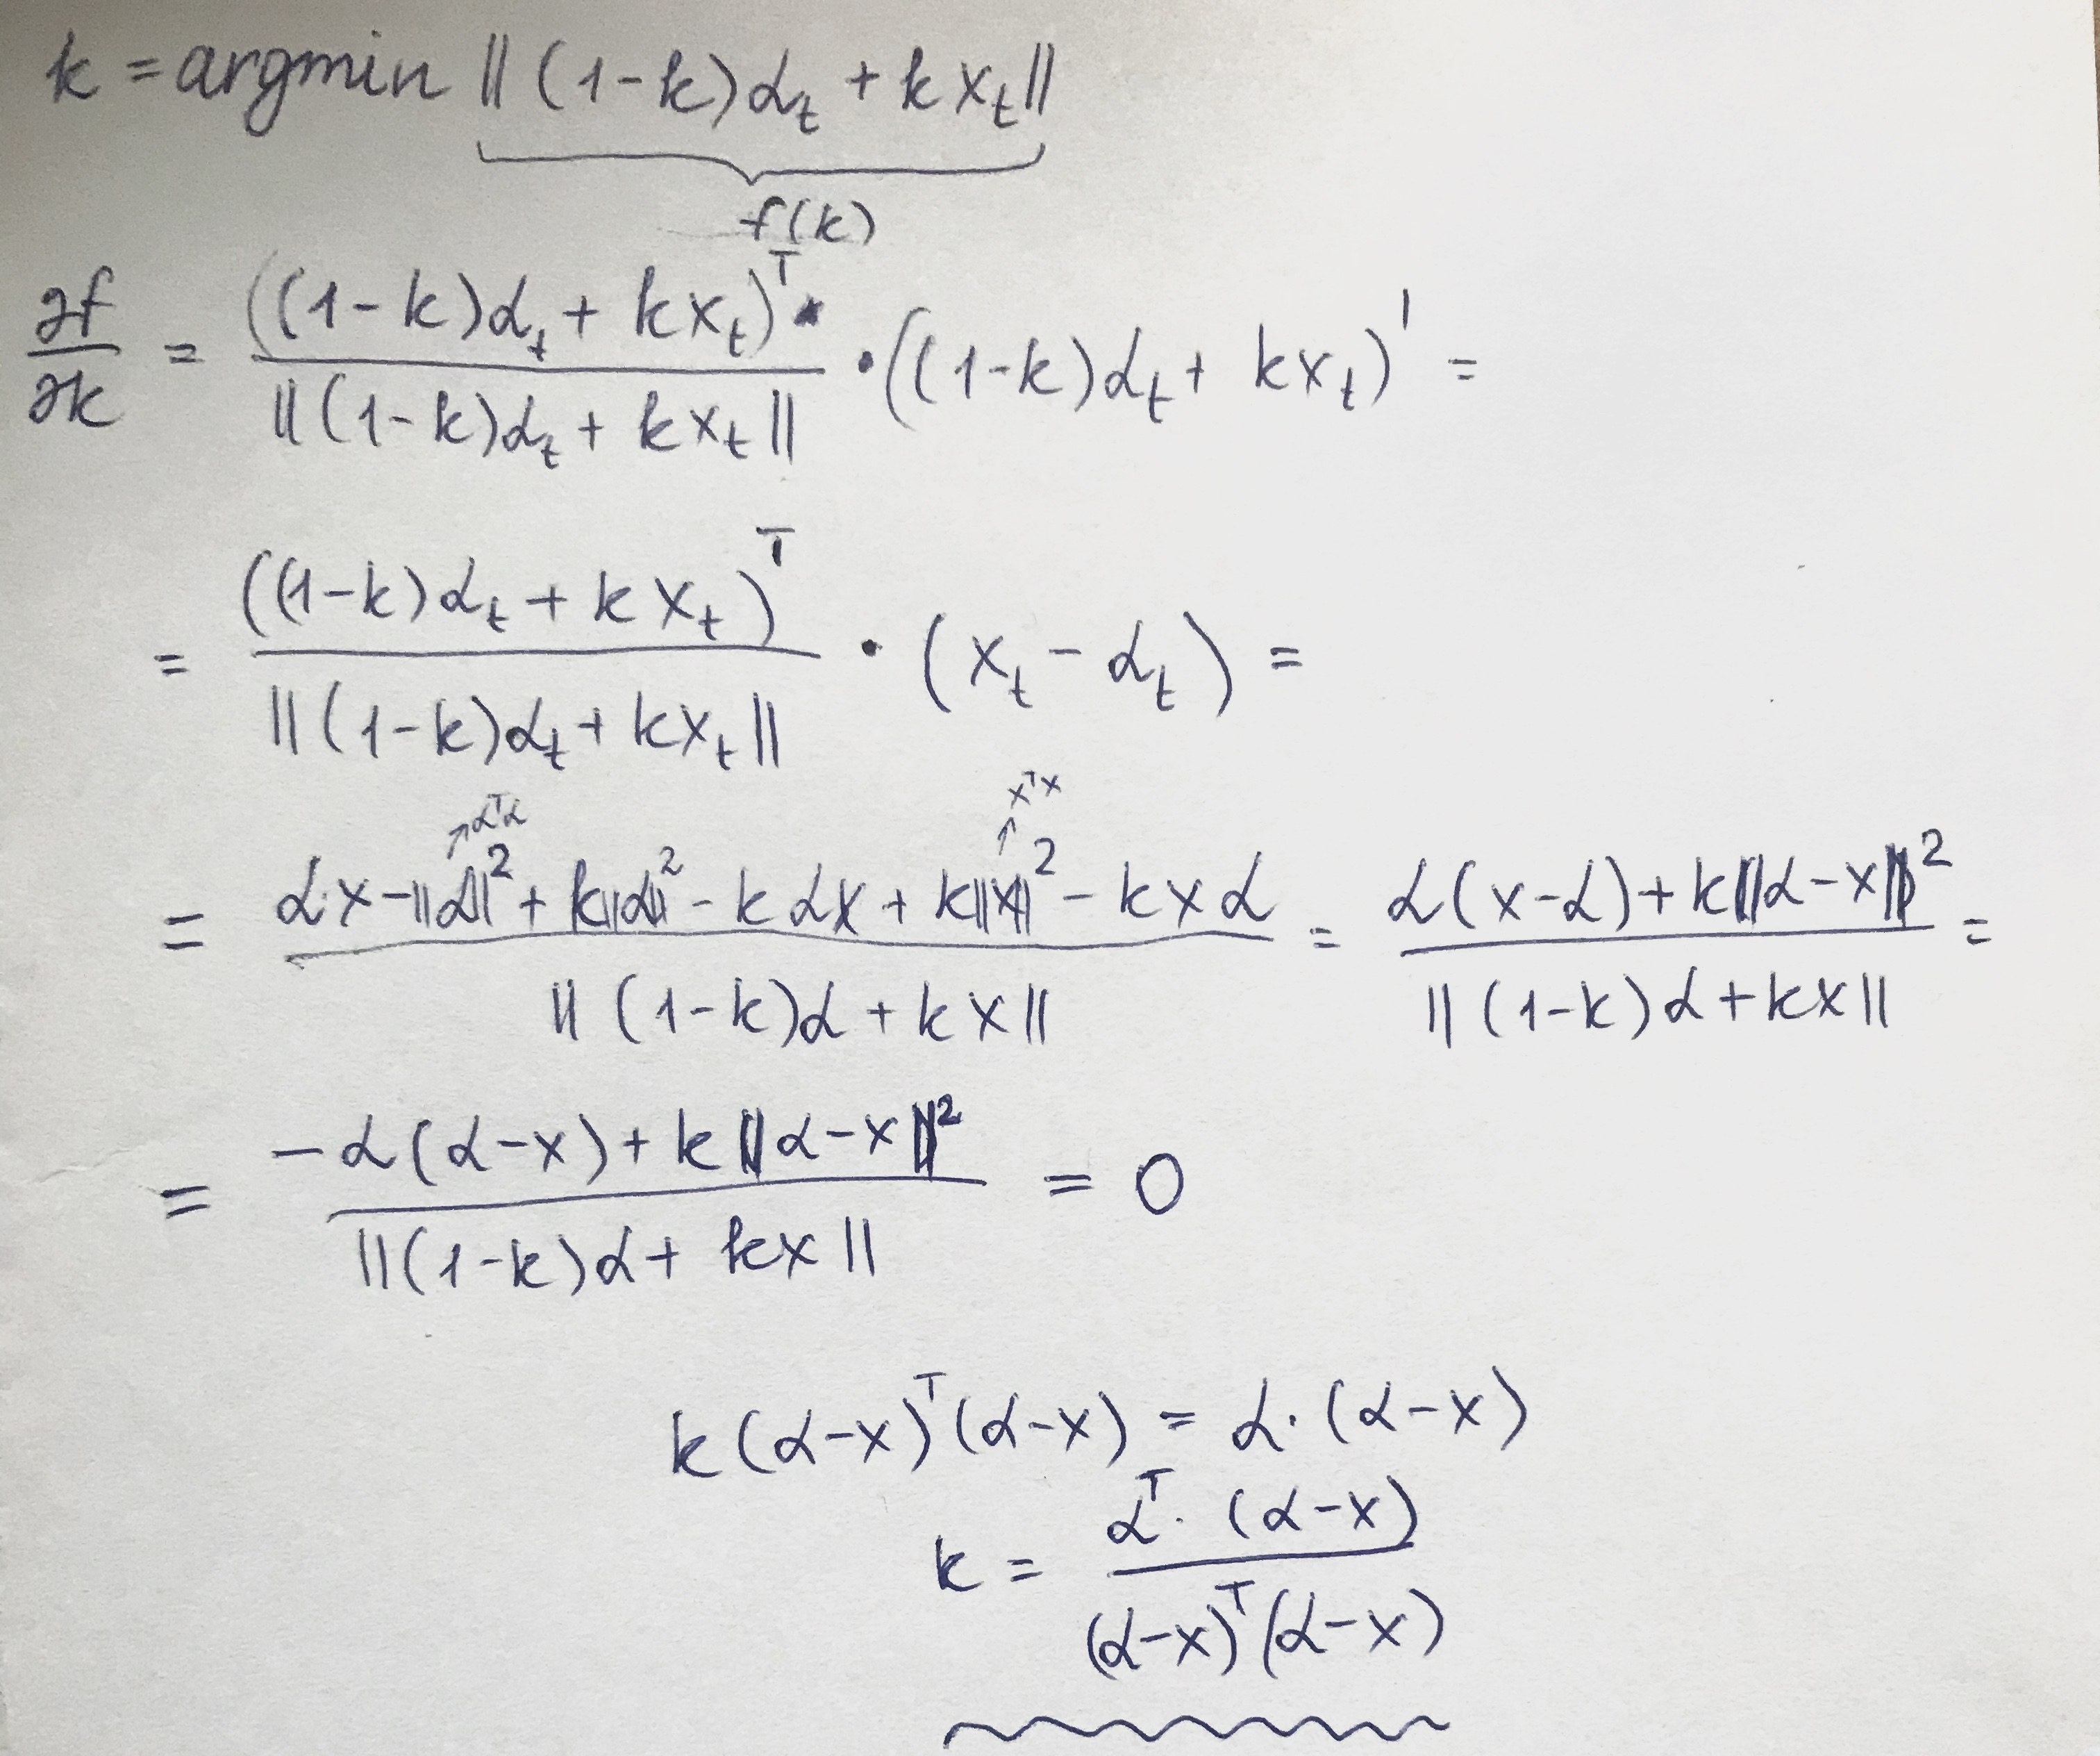 k = argmin ||(1-k)α_t + k x_t||
f(k)
∂f/∂k = ((1-k)α_t + k x_t)^T / ||(1-k)α_t + k x_t|| · ((1-k)α_t + k x_t)' =
= ((1-k)α_t + k x_t)^T / ||(1-k)α_t + k x_t|| · (x_t - α_t) =
↗ α^T α ↑ x^T x
= (α·x - ||α||^2 + k||α||^2 - kαx + k||x||^2 - kxα) / ||(1-k)α + kx|| = (α(x-α) + k||α-x||^2) / ||(1-k)α + kx|| =
= (-α(α-x) + k||α-x||^2) / ||(1-k)α + kx|| = 0
k(α-x)^T(α-x) = α·(α-x)
k = α^T·(α-x) / (α-x)^T(α-x)